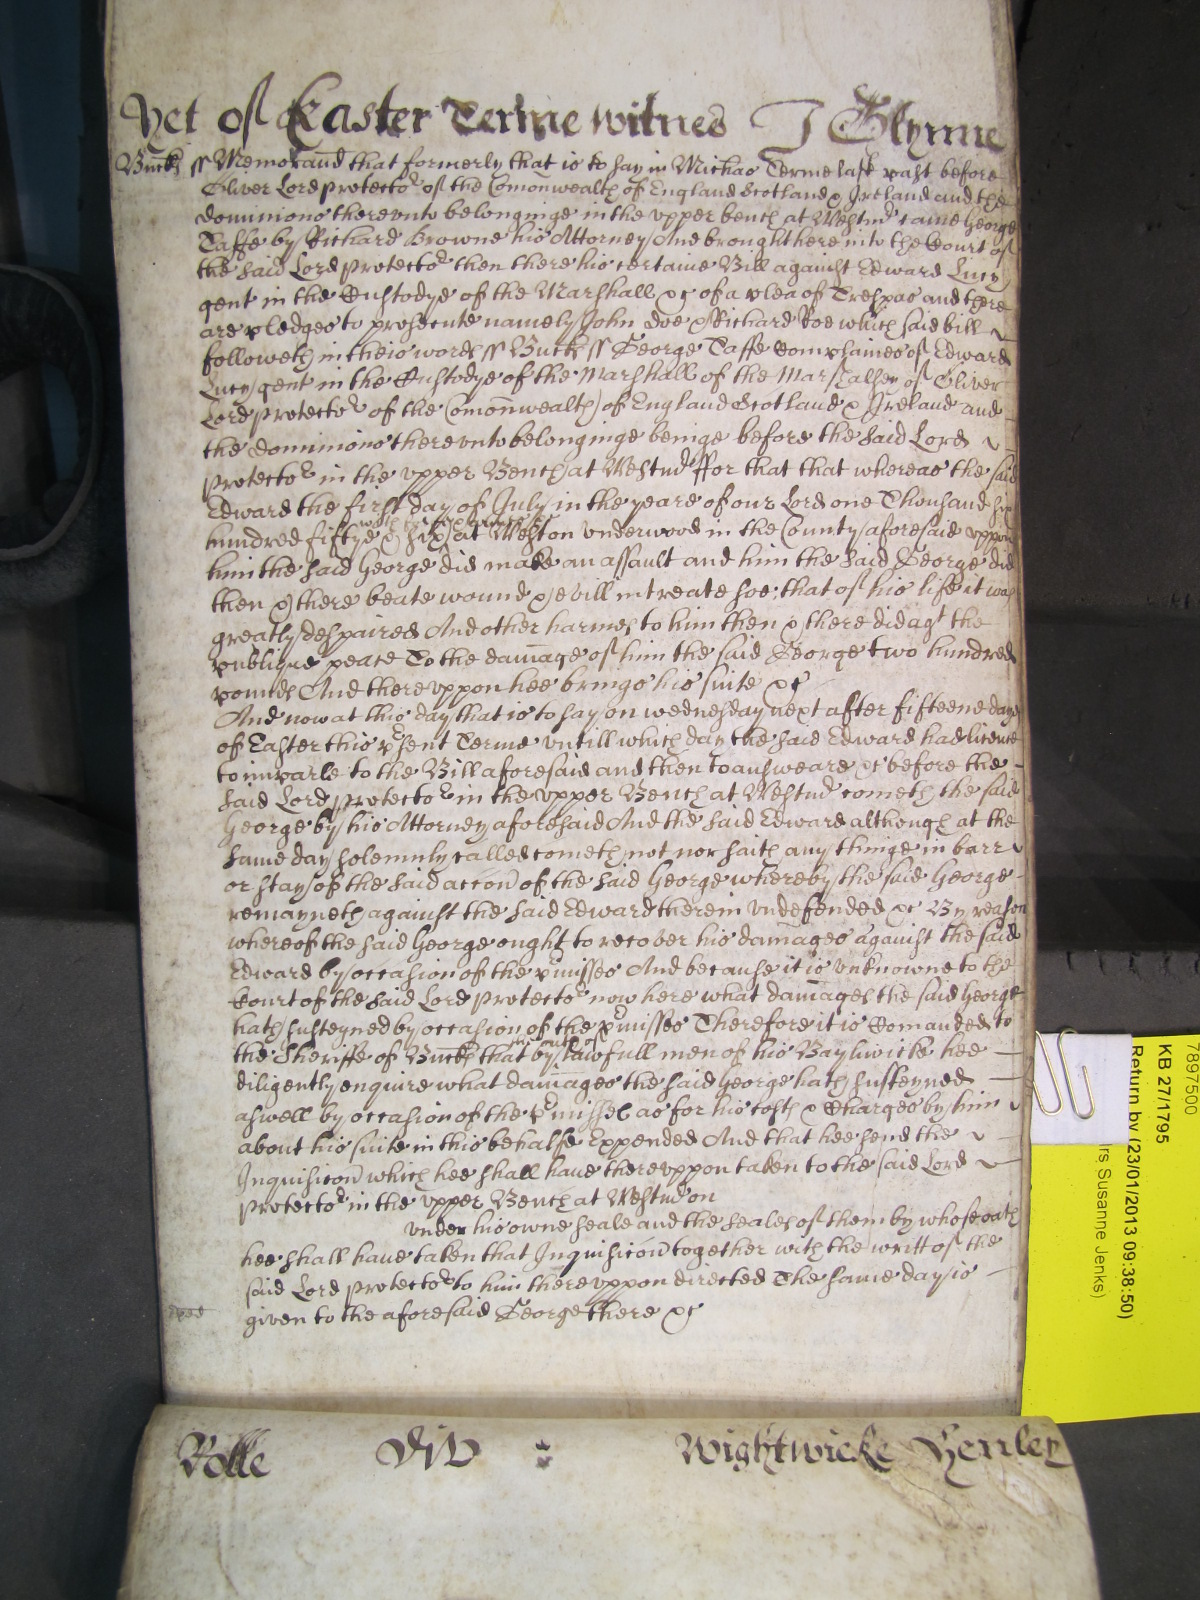 Yet of Easter Terme witnes J Glynne
Bucks ss Memorand that formerly that is to say in Michas Terme last past before
Oliver Lord protector of the Comonwealth of England Scotland & Ireland and the
dominions therevnto belonginge in the vpper bench at Westmr came George
Taffe by Richard Browne his Attorney And brought here into the Court of
the said Lord protector then there his certaine Bill against Edward Lucy
gent in the Custodye of the Marshall &c of a plea of Trespas and there
are pledges to prosecute namely John Doe & Richard Roe which said bill
followeth in theis words ss Bucks ss George Taffe Complaines of Edward
Lucy gent in the Custodye of the Marshall of the Marshalsey of Oliver
Lord protector of the Comonwealth of England Scotland & Ireland and
the dominions therevnto belonginge beinge before the said Lord
protector in the vpper Bench at Westmr ffor that that whereas the said
Edward the first day of July in the yeare of our Lord one Thousand six
hundred fiftye & six at Weston vnderwood in the County aforesaid vppon
him the said George did make an assault and him the said George did
then & there beate wound & evill intreate soe that of his life it was
greatly despaired And other harmes to him then & there did agt the
publique peace To the damage of him the said George two hundred
pounds And therevppon hee brings his suite &c
And now at this day that is to say on wednesday next after fifteene dayes
of Easter this psent Terme vntill which day the said Edward had licence
to imparle to the Bill aforesaid and then to answeare &c before the
said Lord protector in the vpper Bench at Westmr cometh the said
George by his Attorney aforesaid And the said Edward although at the
same day solemnly called cometh not nor saith any thinge in barr
or stay of the said accon of the said George whereby the said George
remayneth against the said Edward therein vndefended &c By reason
whereof the said George ought to recover his damages against the said
Edward by occasion of the pmisses And because it is vnknowne to the
Court of the said Lord protector now here what damages the said George
hath susteyned by occasion of the pmisses Therefore it is Comanded to
the Sheriffe of Bucks that by lawfull men of his Bayliwicke hee
diligently enquire what damages the said George hath susteyned
aswell by occasion of the pmisses as for his costs & Charges by him
about his suite in this behalfe Expended And that hee send the
Inquisicon which hee shall haue therevppon taken to the said Lord
protector in the vpper Bench at Westmr on
vnder his owne seale and the seales of them by whose oath
hee shall haue taken that Inquisicon together with the writt of the
said Lord protector to him therevppon directed The same day is
given to the aforesaid George there &c
Rolle
Wightwicke Henley
7897500
KB 27/1795
Return by (23/01/2013 09:38:50)
rs Susanne Jenks)